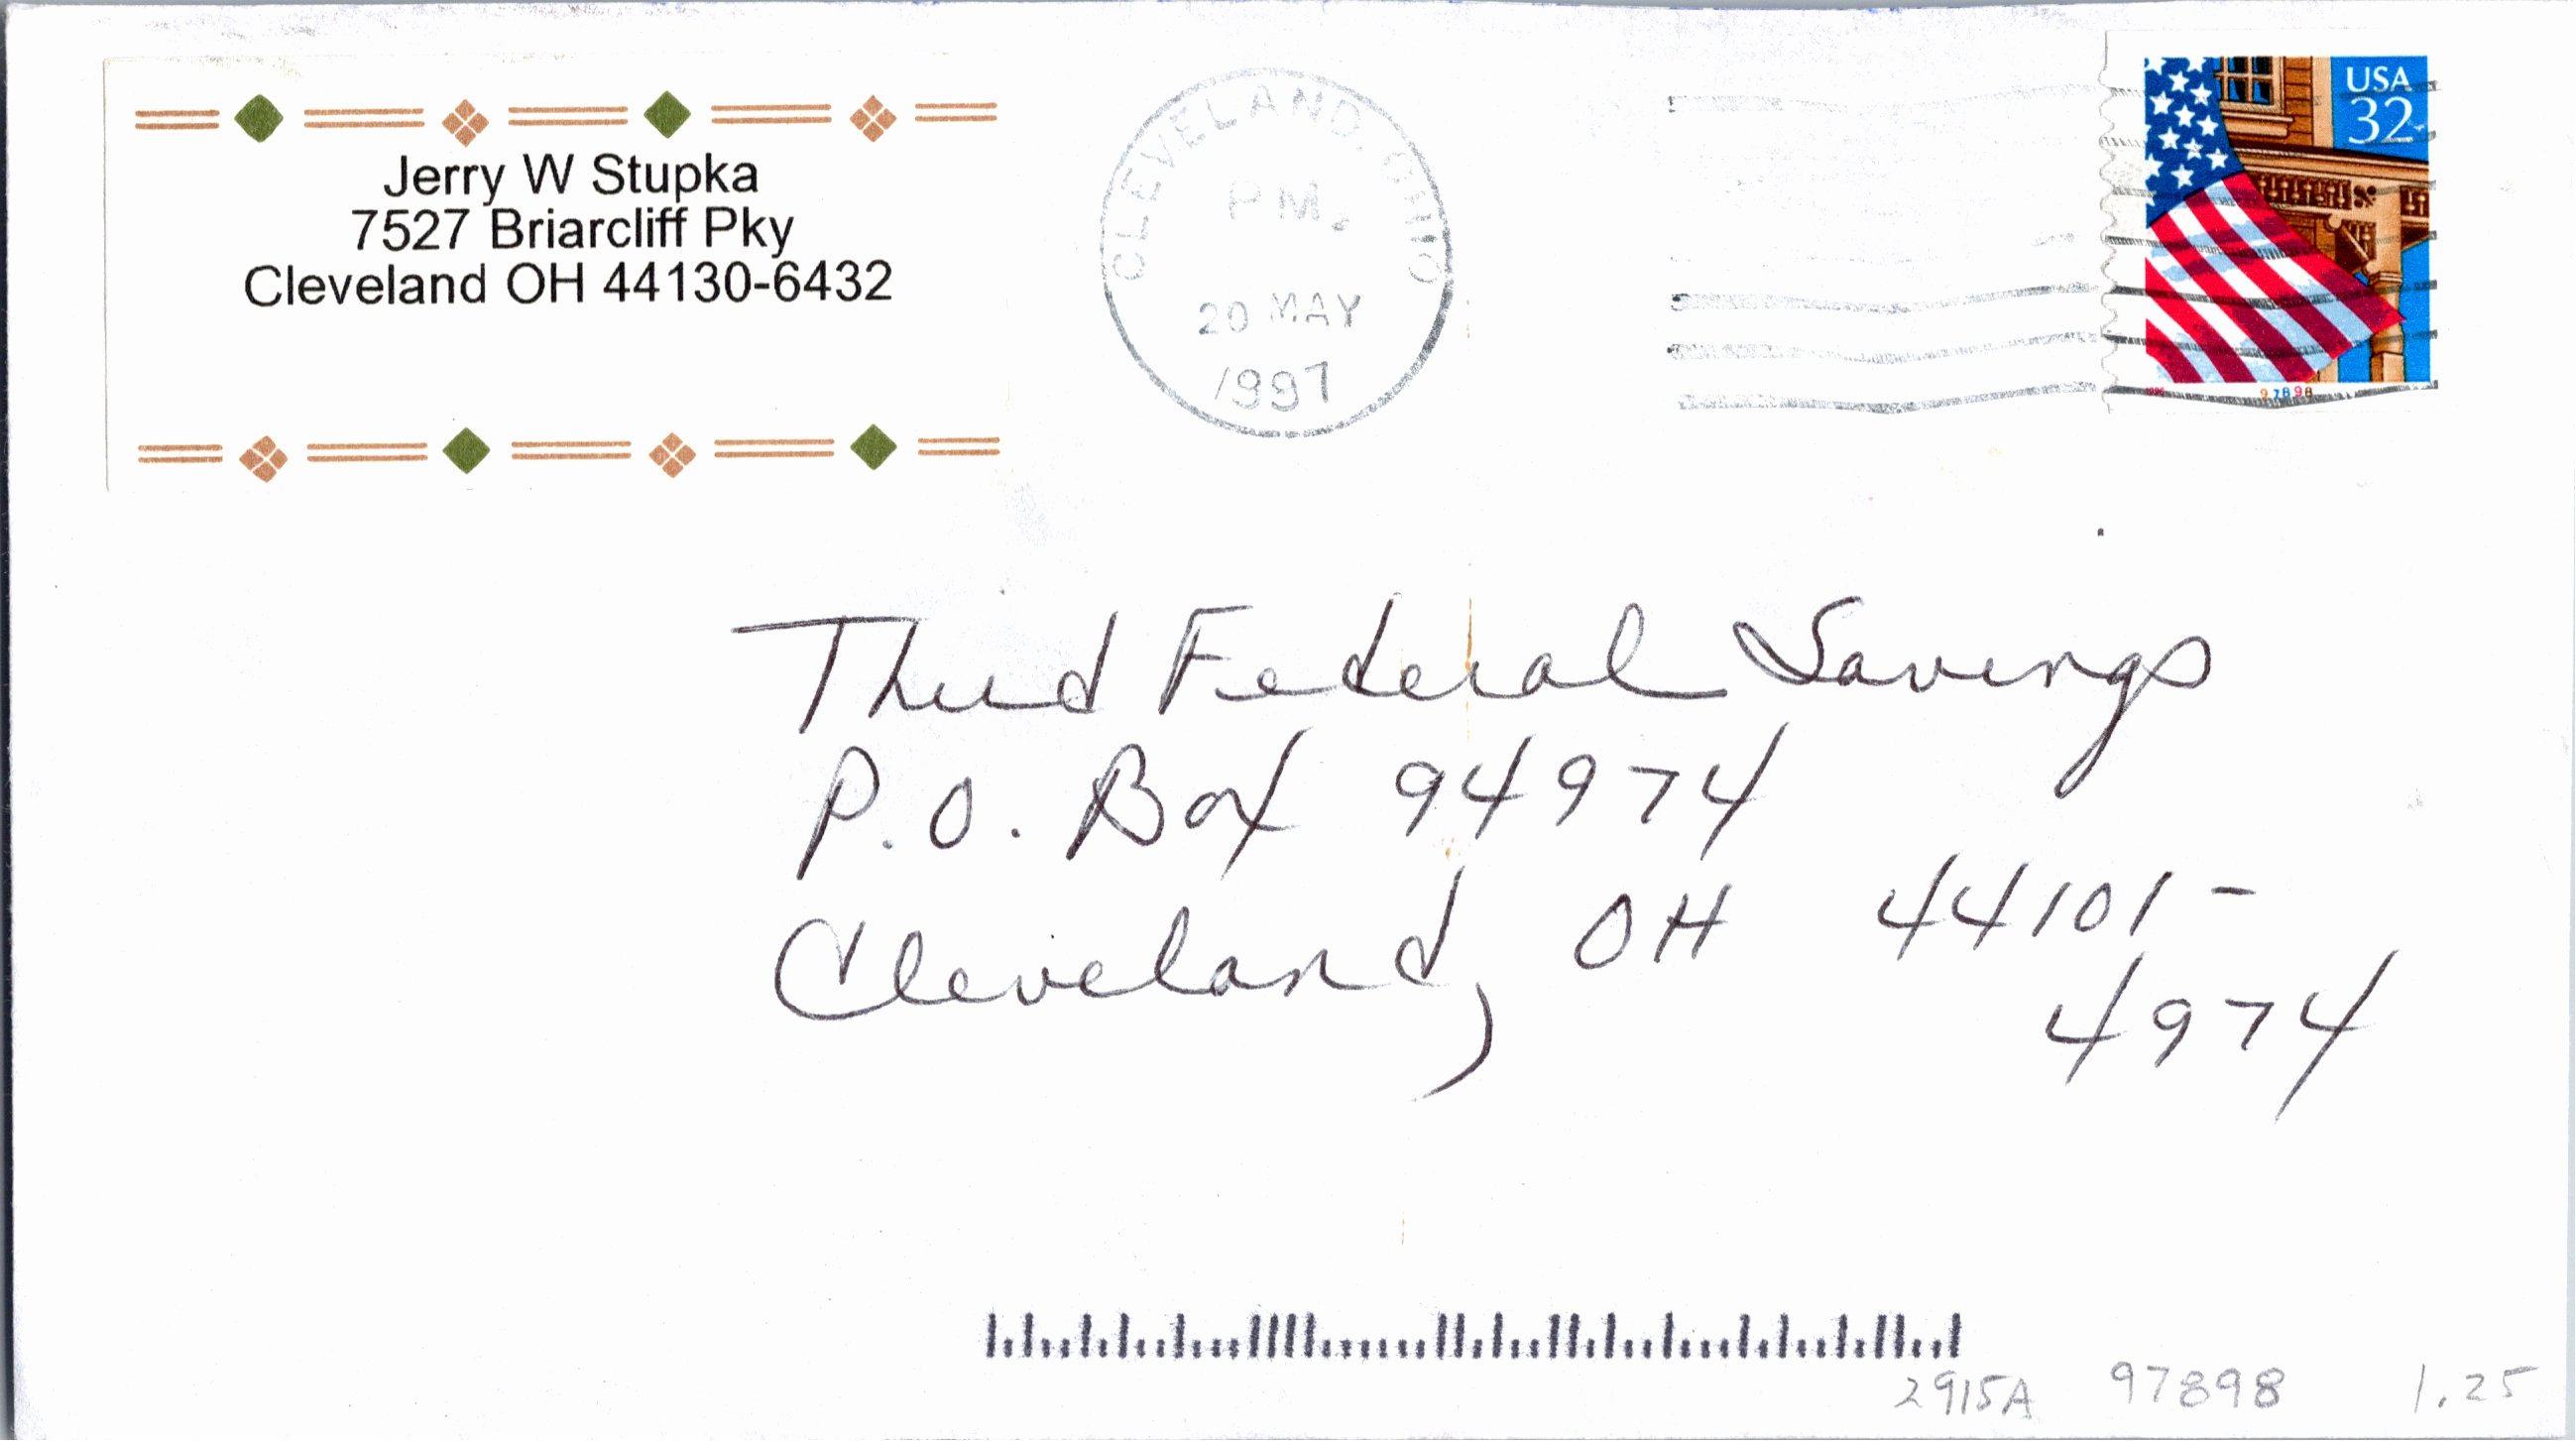 Jerry W Stupka
7527 Briarcliff Pky
Cleveland OH 44130-6432
CLEVELAND, OHIO
PM
20 MAY
1997
USA
32
1996
97898
Third Federal Savings
P.O. Box 94974
Cleveland, OH 44101-
4974
2915A 97898 1.25